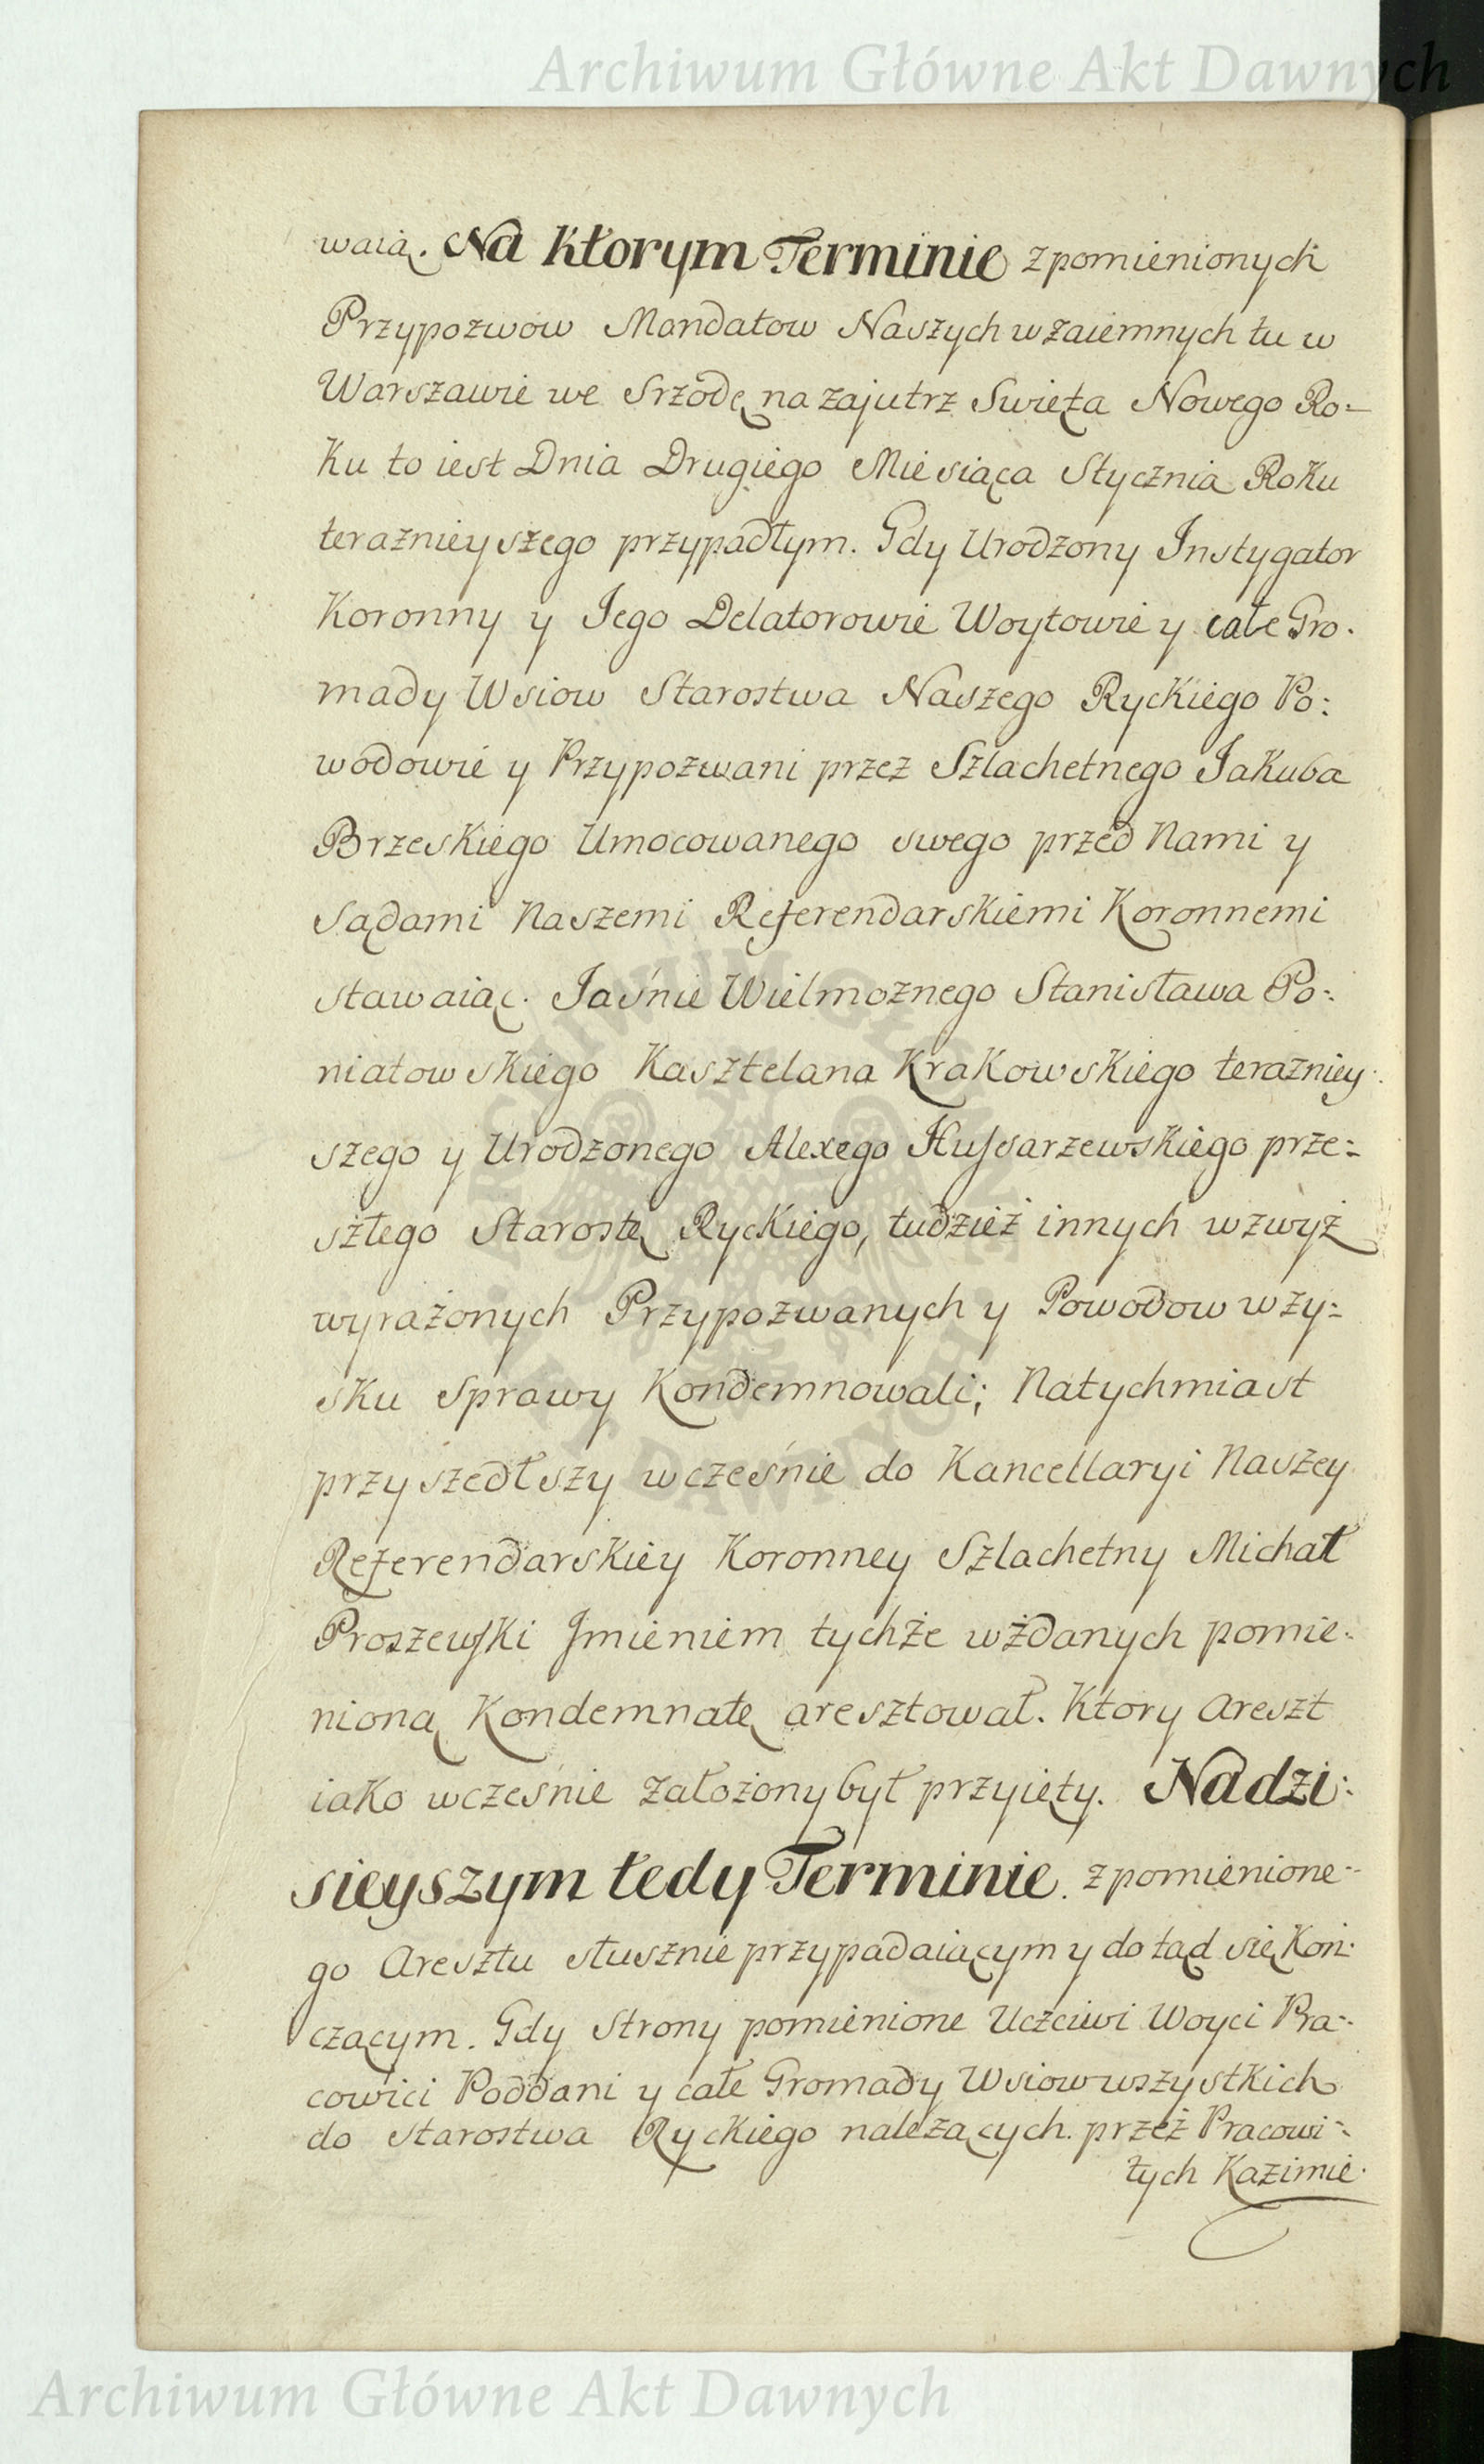 Archiwum Główne Akt Dawnych
waią. Na ktorym Terminie z pomienionych
Przypozwow Mandatow Naszych wzaiemnych tu w
Warszawie we Srzodę na zajutrz Swięta Nowego Ro-
ku to iest Dnia Drugiego Miesiąca Stycznia Roku
teraznieyszego przypadłym. Gdy Urodzony Instygator
Koronny y Jego Delatorowie Woytowie y całe Gro.
mady Wsiow Starostwa Naszego Ryckiego Po:
wodowie y Przypozwani przez Szlachetnego Jakuba
Brzeskiego Umocowanego swego przed Nami y
Sądami Naszemi Referendarskiemi Koronnemi
stawaiąc. Jaśnie Wielmoznego Stanisława Po:
niatowskiego Kasztelana Krakowskiego terazniey.
szego y Urodzonego Alexego Hussarzewskiego prze:
szłego Starostę Ryckiego, tudzież innych wzwyż
wyrażonych Przypozwanych y Powodow wzy:
sku Sprawy Kondemnowali; Natychmiast
przyszedłszy wcześnie do Kancellaryi Naszey
Referendarskiey Koronney Szlachetny Michał
Proszewski Jmieniem tychże wżdanych pomie:
nioną Kondemnatę aresztował. Ktory Areszt
iako wcześnie założony był przyięty. Na dzi:
sieyszym tedy Terminie. z pomienione:
go Aresztu słusznie przypadaiącym y do tąd się koń:
czącym. Gdy Strony pomienione Uczciwi Woyci Pra:
cowici Poddani y całe Gromady Wsiow wszystkich
do Starostwa Ryckiego należących. przez Pracowi:
tych Kazimie.
ARCHIWUM GŁÓWNE AKT DAWNYCH
Archiwum Główne Akt Dawnych